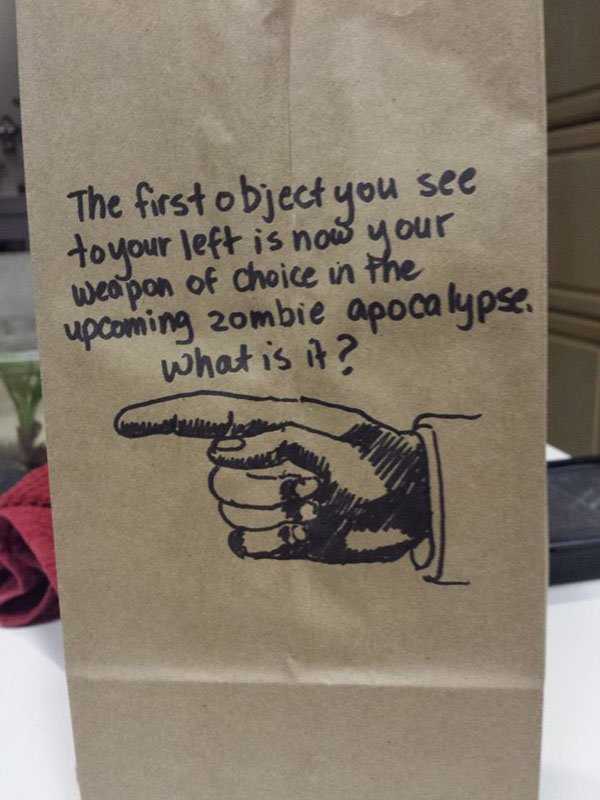 The first object you see
to your left is now your
weapon of choice in the
upcoming zombie apocalypse.
What is it?